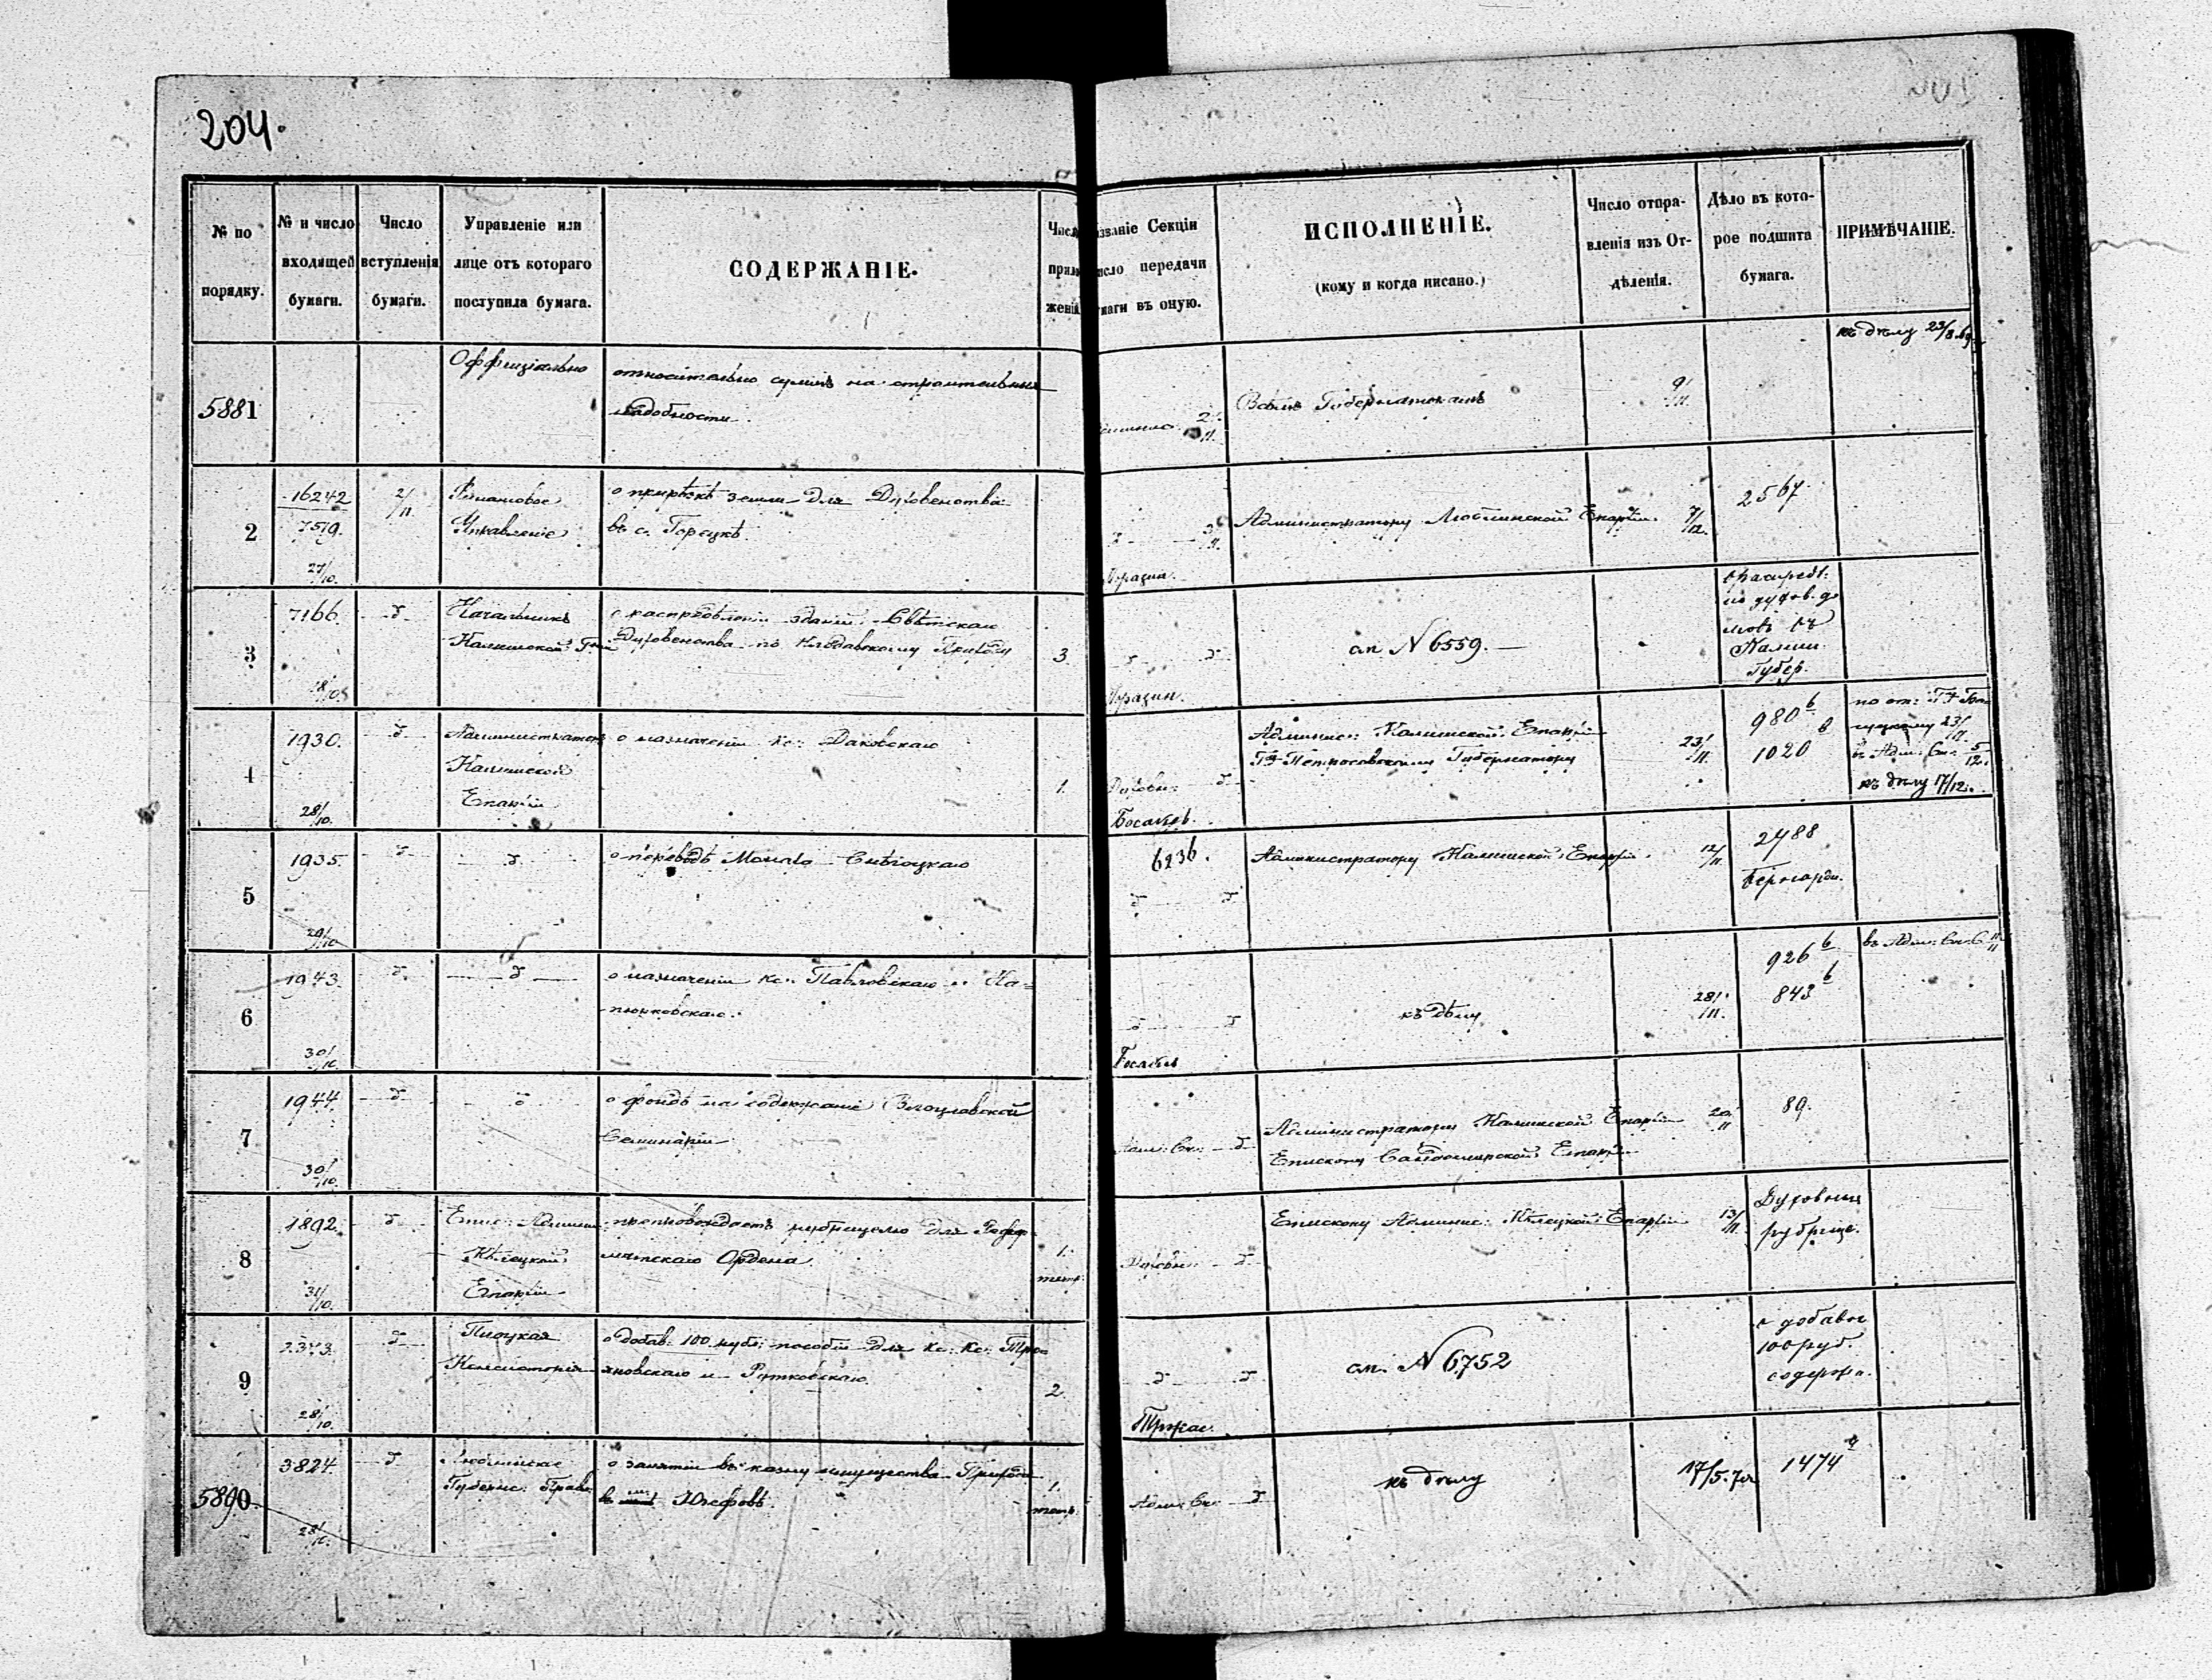 204.
№ по порядку.
№ и число входящей бумаги.
Число вступленія бумаги.
Управленіе или лице отъ котораго поступила бумага.
СОДЕРЖАНІЕ.
Число прило женій
званіе Секціи
число передачи
маги въ оную.
ИСПОЛНЕНІЕ.
(кому и когда писано.)
Число отпра-
вленія изъ От-
дѣленія.
Дѣло въ кото-
рое подшита
бумага.
ПРИМѢЧАНІЕ.
5881
Оффиціально
относительно суммъ на строительныя
надобности
2/11.
Всѣмъ Губернаторамъ
9/11.
къ дѣлу 23/8.69
2
16242
7519.
27/10.
2/11.
Финансовое
Управленіе
о прирѣзкѣ земли для Духовенства
въ с. Горецкѣ.
3/11.
Администратору Люблинской Епархіи.
7/12.
2567.
3
7166.
18/10
д
Начальникъ
Калишской Губ
о распредѣленіи зданій Свѣтскаго
Духовенства по Клодавскому Приходу
3
д д
см N 6559.
о распредѣ:
по духов. до
мовъ въ
Калиш.
Губер.
4
1930.
28/10.
д
Администраторъ
Калишской
Епархіи
о назначеніи Кс: Даковскаго
1.
Духовн: д
Админис: Калишской Епархіи
ГЭ Петроковскому Губернатору
23/11.
980 б
1020 в
по от:
23/11.
въ Адм: Сек. 5/12.
къ дѣлу 17/12.
5
1935.
29/10
д
д
о переводѣ Монаха
6236.
д д
Администратору Калишской Епархіи.
12/11
2488
Бернарди.
6
1943.
30/10
д
д
о назначеніи Кс: Павловскаго и На=
пюрковскаго.
д д
къ дѣлу
28/11.
926 б
843 б
въ Адм: Сек. 11/11
7
1944.
30/10.
д
д
о фондѣ на содержаніе Влоцлавской
Семинаріи
Адм: Сек: д
Администратору Калишской Епархіи
Епископу Сандомирской Епархіи
20/11
89.
8
1892.
31/10.
д
Епис: Админи
Кѣлецкой
Епархіи
препровождаетъ рубрицелю для Рефор
матскаго Ордена.
1.
тетр.
Духовн: д
Епископу Админис: Кѣлецкой Епархіи
13/11.
Духовныя
рубрице.
9
2343.
28/10.
д
Плоцкая
Консисторія
о добав: 100 руб: пособіи для Кс: Кс: Тро
яновскаго и Рутковскаго.
2.
д д
см. N 6752
о добавоч
100 руб.
содержа.
5890.
3824.
28/10.
д
Люблинское
Губернс: Прав:
о занятіи въ казну имущества Прихода
въ Юзефовѣ.
1.
тетр.
Адм: Сек: д
къ дѣлу
17/5.70
1474 ч